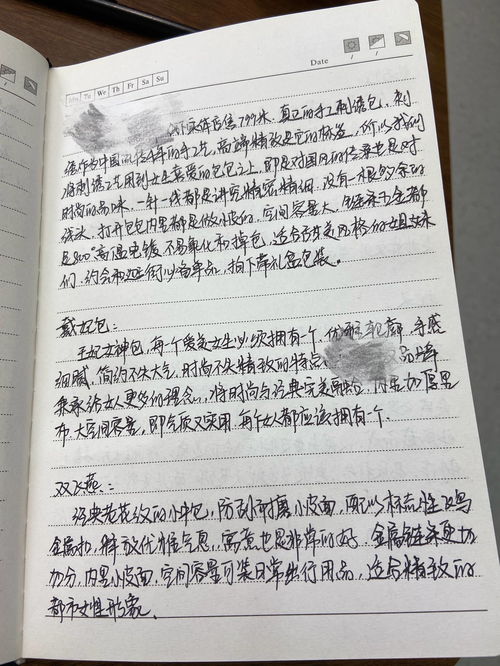 Mo Tu We Th Fr Sa Su
Date
线下实体店售799米，真正的手工刺绣包，刺
绣作为中国流传千年的手工艺，高端精致是它的标签，所以我们
将刺绣工艺用到女生喜爱的包包上，即是对国风的传承也是对
时尚的品味，一针一线都是讲究精密精细，没有一根多余的
线头，打开包包内里都是做小皮的，空间容量大，链条五金都
是800°高温电镀，不易氧化和掉色，适合甜美风格的姐妹
们，约会和逛街必备单品，拍下带礼盒包装。
戴妃包：
王妃女神包，每个爱美女生必须拥有一个，优雅轮廓，手感
细腻，简约不失大气，时尚不失精致的特点， 品牌
秉承给女人更多的理念，将时尚与经典完美融合，内里加厚里
布，大空间容量，即气质又实用，每个女人都应该拥有一个。
双飞燕：
经典老花纹的小牛包，防刮耐磨小皮面，配以标志性飞鸟
金属扣，释放优雅气息，寓意也是非常的好，金属链条更加
加分，内里小皮面，空间容量可装日常出行用品，适合精致的
都市女性形象。